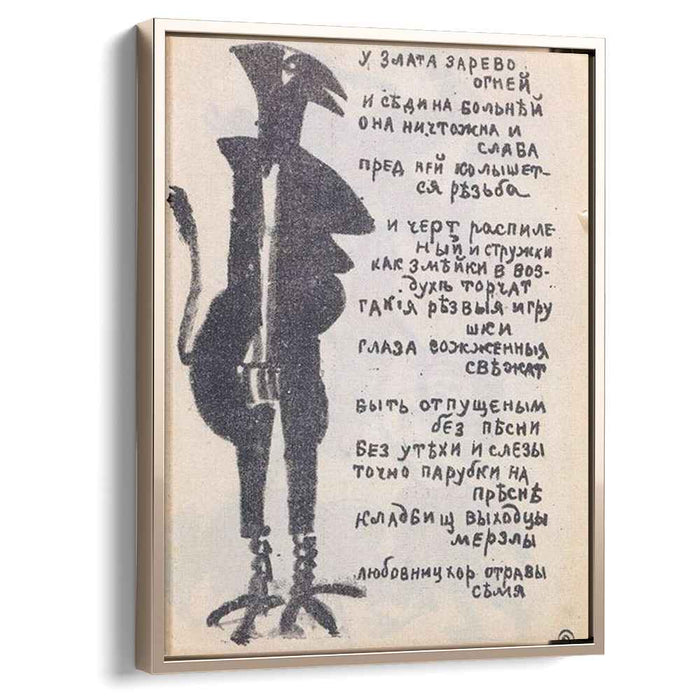 У ЗЛАТА ЗАРЕВО
ОГНЕЙ
И СѢДИНА БОЛЬНѢЙ
ОНА НИЧТОЖНА И
СЛАБА
ПРЕД НЕЙ КОЛЫШЕТ-
СЯ РѢЗЬБА
И ЧЕРТ РАСПИЛЕ-
НЫЙ И СТРУЖКИ
КАК ЗМѢЙКИ В ВОЗ-
ДУХѢ ТОРЧАТ
ТАКІЯ РѢЗВЫЯ ИГРУ
ШКИ
ГЛАЗА ВОЖЖЕННЫЯ
СВѢЖАТ
БЫТЬ ОТПУЩЕНЫМ
без ПѢСНИ
БЕЗ УТѢХИ И СЛЕЗЫ
ТОЧНО ПАРУБКИ НА
ПРѢСНѢ
КЛАДБИЩ ВЫХОДЦЫ
МЕРЗЛЫ
ЛЮБОВНИЦ ХОР ОТРАВЫ
СѢМЯ